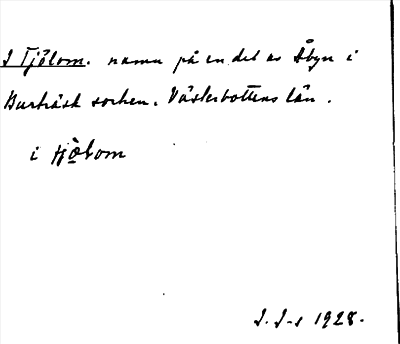 I Tjölom. namn på en del av Åbyn i
Burträsk socken. Västerbottens län.
i tjò̱lom
J. J-s 1928.